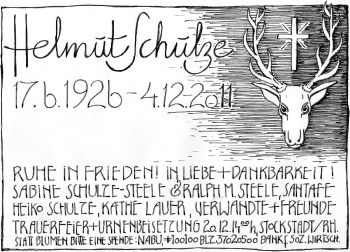 Helmut Schulze
17.6.1926-4.12.2011
RUHE IN FRIEDEN! IN LIEBE + DANKBARKEIT!
SABINE SCHULZE-STEELE & RALPH M. STEELE, SANTA FE
HEIKO SCHULZE, KÄTHE LAUER, VERWANDTE + FREUNDE
TRAUERFEIER + URNENBEISETZUNG 20.12. 14ººh, STOCKSTADT/RH.
STATT BLUMEN BITTE EINE SPENDE: NABU, #100100 BLZ. 37020500 BANK F. SOZ. WIRTSCH.